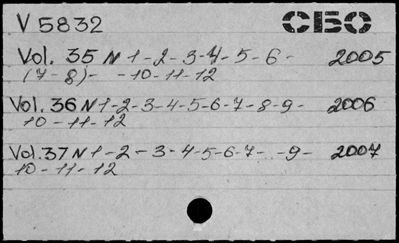 V 5832 СБО
Vol. 35 N 1-2-3-4-5-6- 2005
(7-8)- -10-11-12
Vol. 36 N 1-2-3-4-5-6-7-8-9- 2006
10-11-12
Vol. 37 N 1-2-3-4-5-6-7- -9- 2007
10-11-12